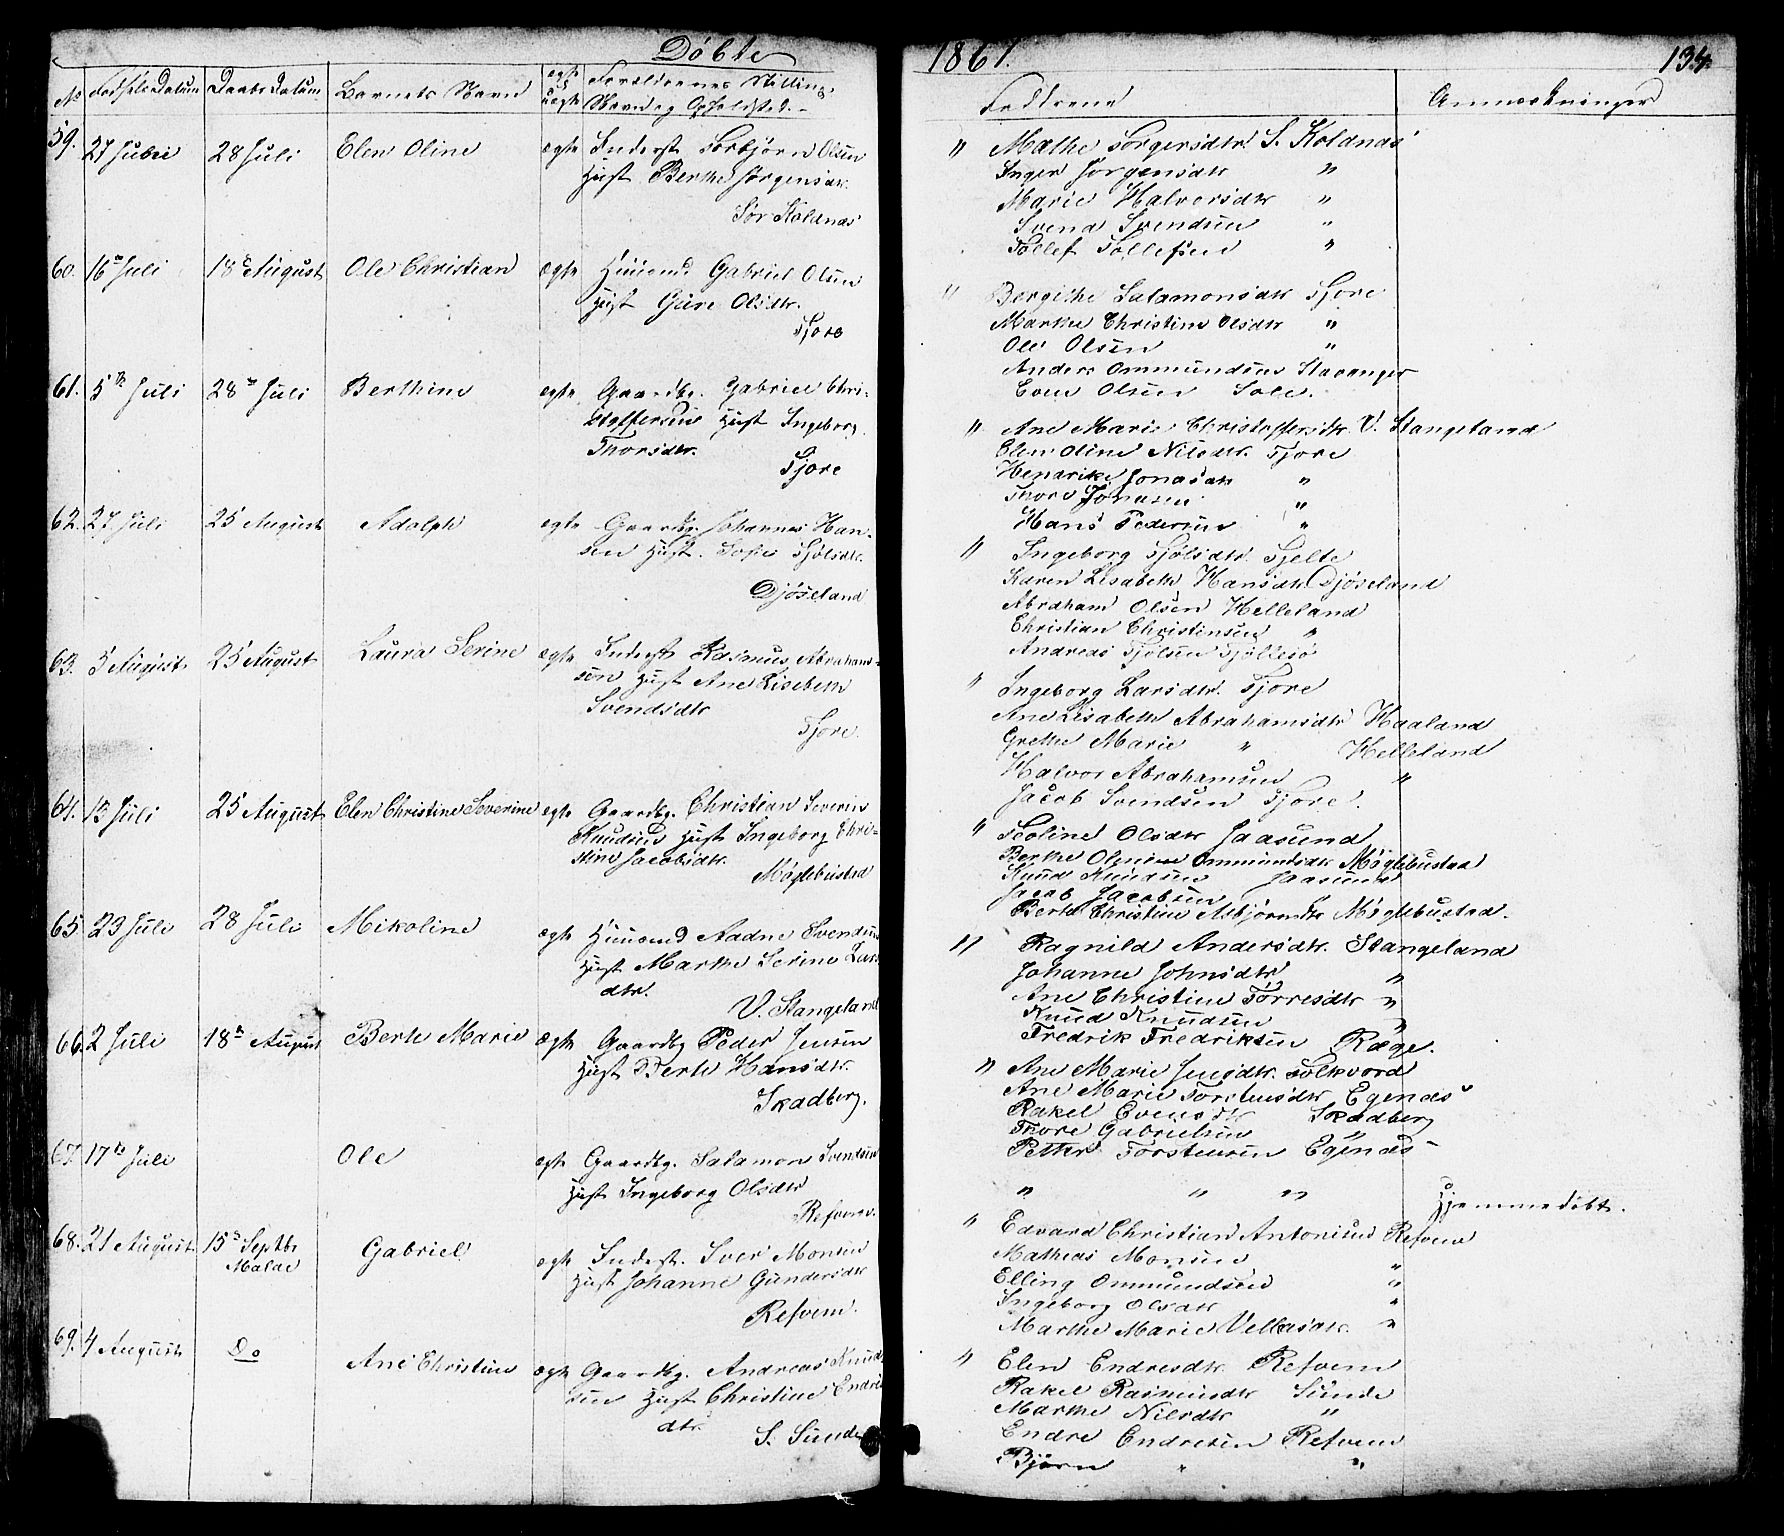 Döbte
1867.
134.
No
Fødsels Datum
Daabs Datum
Barnets Navn
egte
uegte
Forældrenes Stilling,
Navn og Opholdsted.
Faddrene
Anmærkninger
59. 27 Juli 28 Juli Elen Oline egte Inderst Torbjörn Olsen
Hust Berthe Jörgensdtr.
Sör Koldnæs
" Malhe Torgersdtr S. Koldnæs
Inger Jörgensdtr "
Marie Halvorsdtr "
Svend Svendsen "
Tollef Tollefsen "
60. 16 Juli 18 August Ole Christian egte Huusmd Gabriel Olsen
Hust Gure Olsdtr.
Tjore
" Bergithe Salamonsdtr Tjore
Marthe Christine Olsdtr "
Ole Olsen "
Anders Ommundsen Stavanger
Even Olsen Sole.
61. 5 Juli 28 Juli Berthine egte Gaardbr. Gabriel Chri-
stoffersen Hust Ingeborg
Thorsdtr.
Tjore
" Ane Marie Christoffersdtr V. Stangeland
Elen Oline Nilsdtr. Tjore
Hendrike Jonasdtr "
Thore Jonasen "
Hans Pedersen "
62. 27 Juli 25 August Adolph egte Gaardbg. Johannes Han-
sen Hust. Sofie Tjölsdtr.
Djöseland
" Ingeborg Tjölsdtr. Tjelte
Karen Lisabeth Hansdtr Djöseland
Abraham Olsen Helleland
Christian Christensen "
Andreas Tjölsen
63. 5 August 25 August Laura Serine egte Inderst Rasmus Abraham-
sen Hust Ane Lisebeth
Svendsdtr
Tjore.
" Ingeborg Larsdtr. Tjore
Ane Lisabeth Abrahamsdtr Haaland
Grethe Marie " Helleland
Halvor Abrahamsen "
Jacob Svendsen Tjore.
64. 13 Juli 25 August Elen Christine Severine egte Gaardbg. Christian Severin
Knudsen Hust Ingeborg Chri-
stine Jacobsdtr.
Möglebustad
" Olsdtr Jaasund
Berthe Oline Ommundsdtr Möglebustad
Knud Knudsen Jaasund
Jacob Jacobsen
Berte Christine Asbjörnsdtr Möglebustad.
65 23 Juli 28 Juli Mikoline egte Huusmd Aadne Svendsen
Hust Marthe Serine Lars
dtr.
V. Stangeland
" Ragnild Andersdtr. Stangeland
Johanne Johnsdtr "
Ane Christine Törresdtr "
Knud Knudsen "
Fredrik Fredriksen Ræge.
66. 2 Juli 18 August Berte Marie Ægte Gaardbg Peder Jensen
Hust Berte Hansdtr.
Skadberg.
" Ane Marie Jensdtr. Folkvord
Ane Marie Torstensdtr Egenæs
Rakel Evensdtr Skadberg
Thore Gabrielsen "
Torstensen Egenæs
67. 17 Juli Ole egte Gaardbg. Salamon Svendsen
Hust Ingeborg Olsdtr
Refvem.
" " " Hjemmedöbt.
68. 21 August 15 Septbr
Malde
Gabriel egte Inderst. Iver Monsen
Hust Johanne Gundersdtr
Refvem.
" Edvard Christian Antonius Refvem
Mathias Monsen "
Elling Ommundsen "
Ingeborg Olsdtr "
Marthe Marie Vellasdtr. "
69. 4 August Do Ane Christine egte Gaardbg. Andreas Knud
sen Hust Christine Endre
dtr.
S. Sunde
" Elen Endresdtr. Refvem
Rakel Rasmusdtr Sunde
Marthe Nilsdtr "
Endre Endresen Refvem
Björn " "